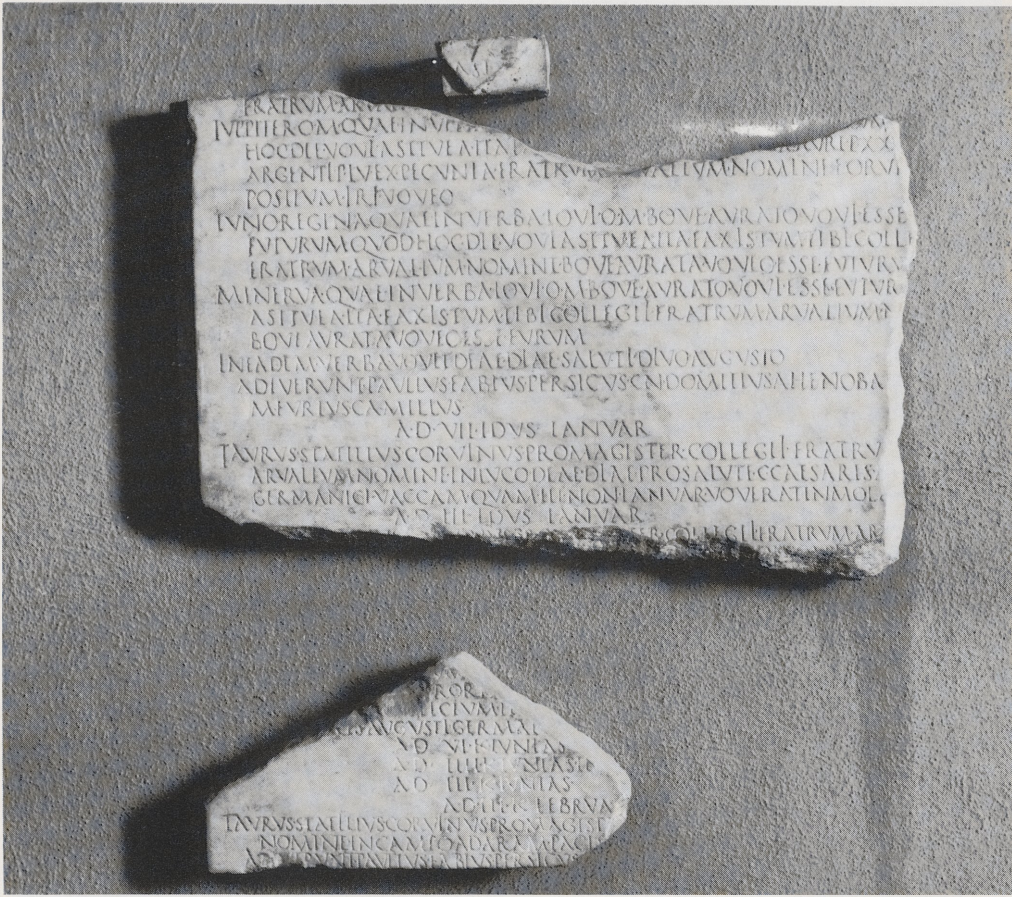 FRATRUM·ARVAL
HOC DIE VOVI AST TU EA ITA
ARGENTI P IIII EX PECUNIA FRATRUM ARVALIUM·NOMINE FORU
POSITUM IRI VOVEO
IUNO REGINA QUAE IN VERBA IOVI·O·M·BOVE AURATO VOVI ESSE
FUTURUM QUOD HOC DIE VOVI AST TU EA ITA FAXIS TUM TIBI COLL
FRATRUM·ARVALIUM·NOMINE BOVE AURATA VOVEO ESSE FUTURU
MINERVA QUAE IN VERBA IOVI O M BOVE AURATO VOVI ESSE FUTUR
AST TU EA ITA FAXIS TUM TIBI COLLEGI FRATRUM ARVALIUM N
BOVE AURATA VOVEO ESSE FUTURUM
IN EADEM VERBA VOVIT DEAE DIAE SALUTI DIVO AUGUSTO
ADFUERUNT PAULLUS FABIUS PERSICUS CN DOMITIUS AHENOBA
M FURIUS CAMILLUS
A·D·VII·IDUS IANUAR
TAURUS STATILIUS CORVINUS PROMAGISTER COLLEGI FRATRU
ARVALIUM NOMINE IN LUCO DEAE DIAE PRO SALUTE C CAESARIS
GERMANICI VACCAM QUAM III NON IANUAR VOVERAT INMOL
A·D·III·IDUS IANUAR
COLLEGI FRATRUM AR
AUGUSTI GERMA
A D VI K IUNIAS
A D
A D
A D III K FEBRUA
TAURUS STATILIUS CORVINUS PROMAGIST
NOMINE IN CAMPO AD ARAM PACI
PAULLUS FABIUS PERSIC